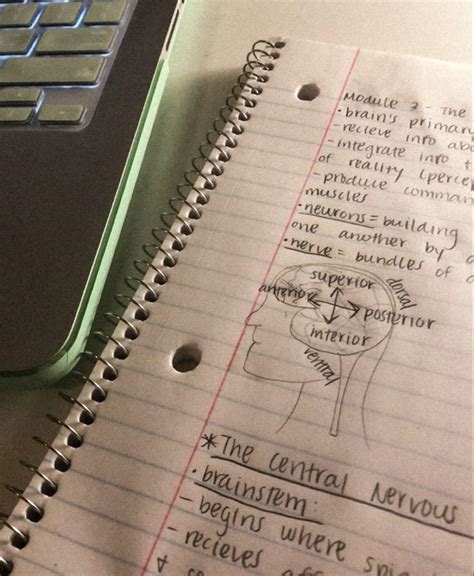 Module 2 - The
• brain's primar
- recieve info abo
- integrate info
of reality (perce
- produce comman
muscles
• neurons = building
one another by a
• nerve = bundles of
superior
dorsal
anterior
posterior
interior
ventral
*The Central Nervous
• brainstem:
- begins where spi
- recieves aff